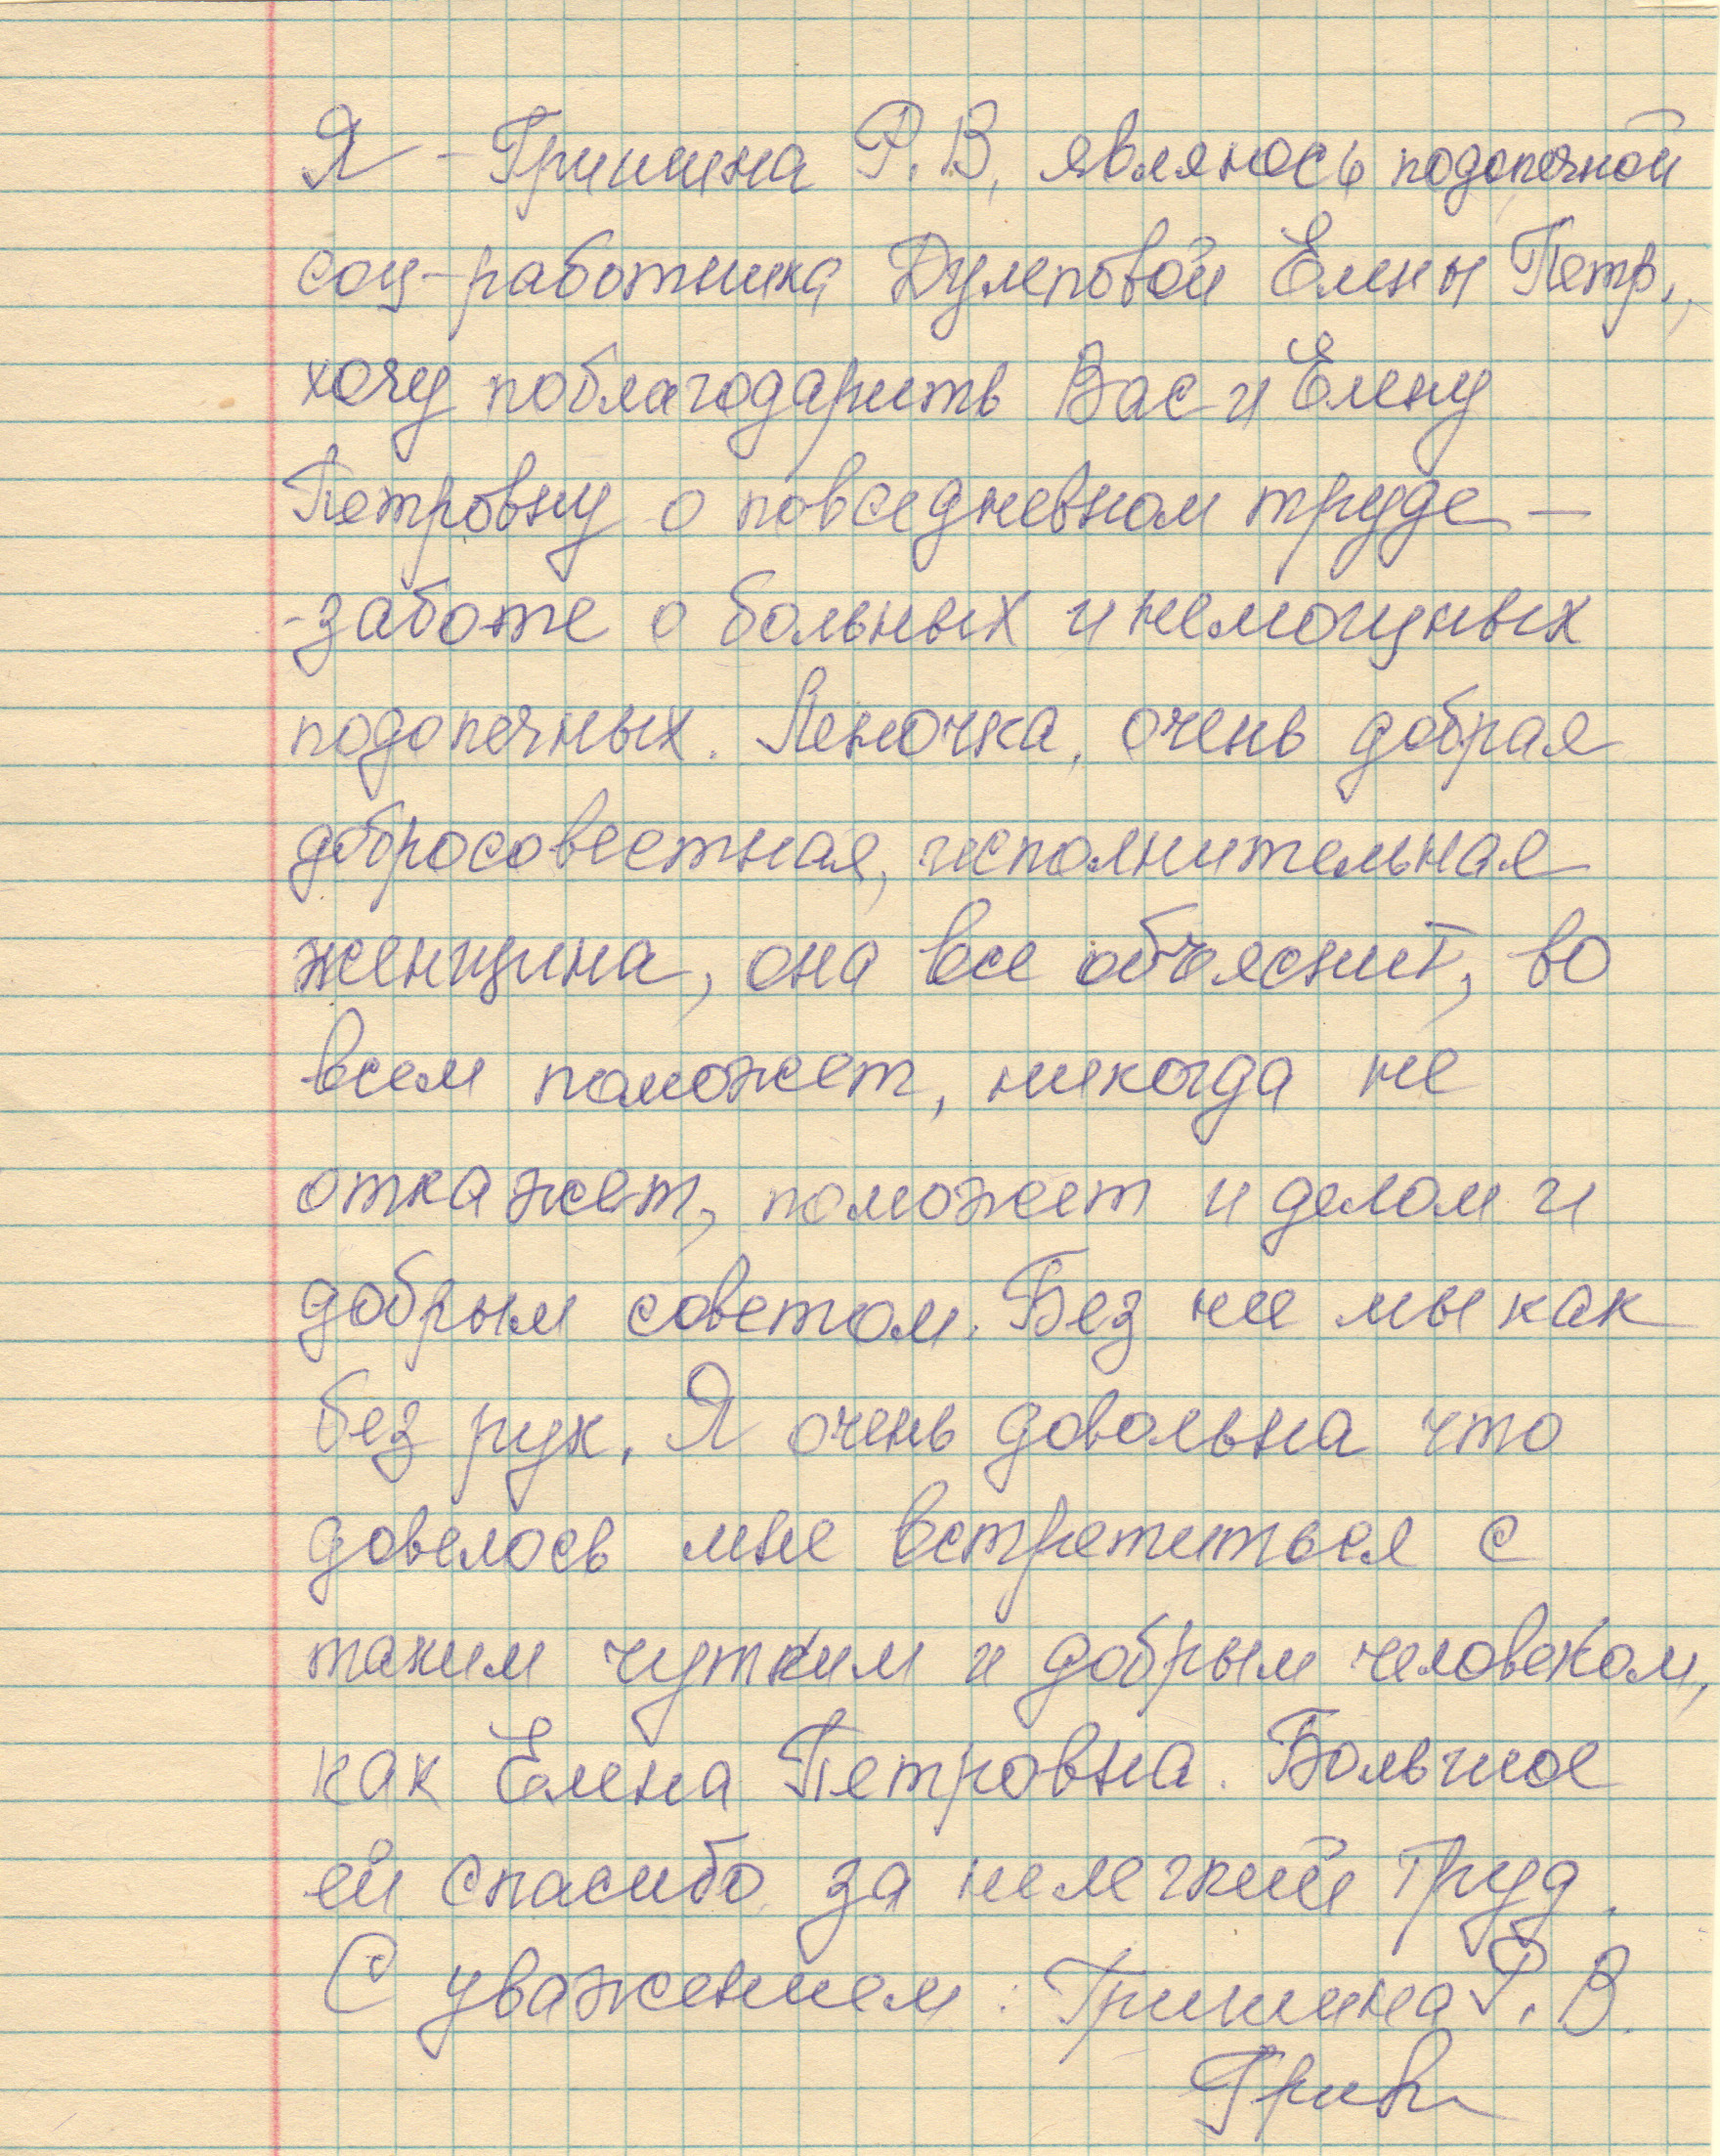 Я - Гришина Р. В, являюсь подопечной
соц-работника Дулеповой Елены Петр.,
хочу поблагодарить Вас и Елену
Петровну о повседневном труде -
-заботе о больных и немощных
подопечных. Леночка, очень добрая
добросовестная, исполнительная
женщина, она все объяснит, во
всем поможет, никогда не
откажет, поможет и делом и
добрым советом. Без нее мы как
без рук. Я очень довольна что
довелось мне встретиться с
таким чутким и добрым человеком,
как Елена Петровна. Большое
ей спасибо за нелегкий труд.
С уважением: Гришина Р. В.